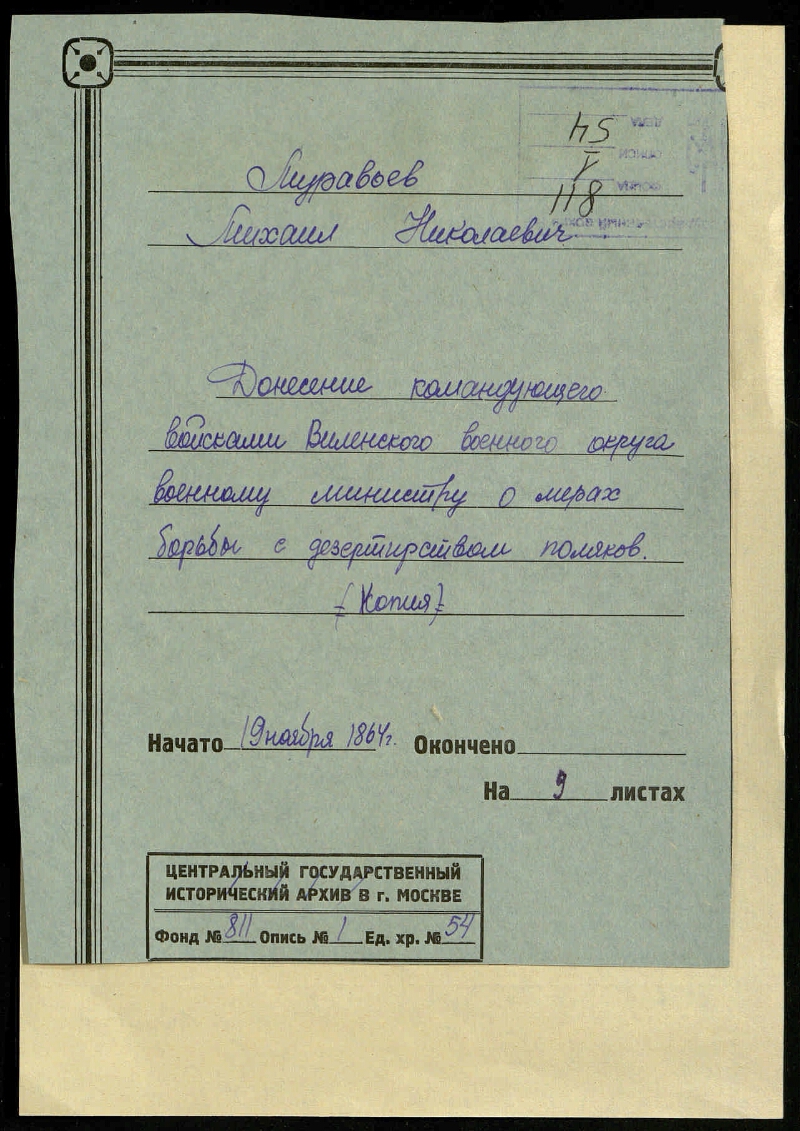 54
1
811
Муравьев
Михаил Николаевич
Донесение командующего
войсками Виленского военного округа
военному министру о мерах
борьбы с дезертирством поляков.
(Копия)
Начато 19 ноября 1864 г. Окончено
На 9 листах
ЦЕНТРАЛЬНЫЙ ГОСУДАРСТВЕННЫЙ
ИСТОРИЧЕСКИЙ АРХИВ В г. МОСКВЕ
Фонд № 811 Опись № 1 Ед. хр. № 54